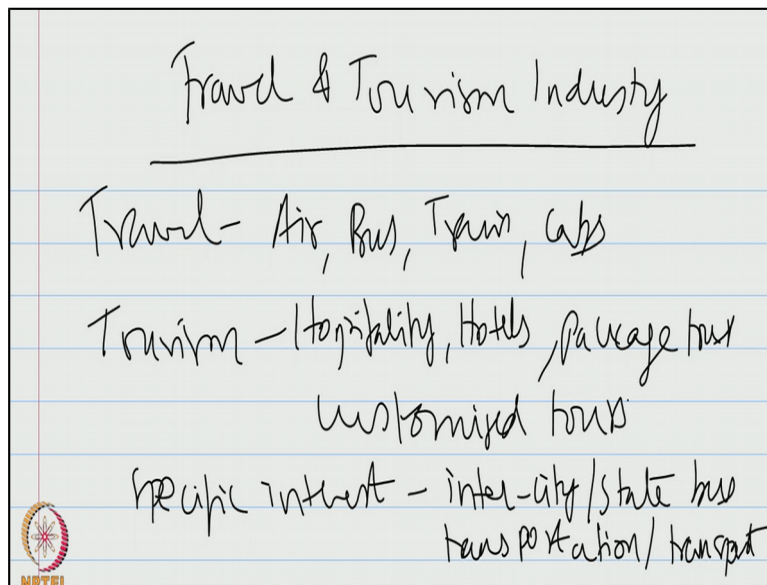 Travel & Tourism Industry
Travel - Air, Bus, Train, Cabs
Tourism - Hospitality, Hotels, package tour
customized tours
Specific interest - inter-city/state bus
transportation/transport
NPTEL